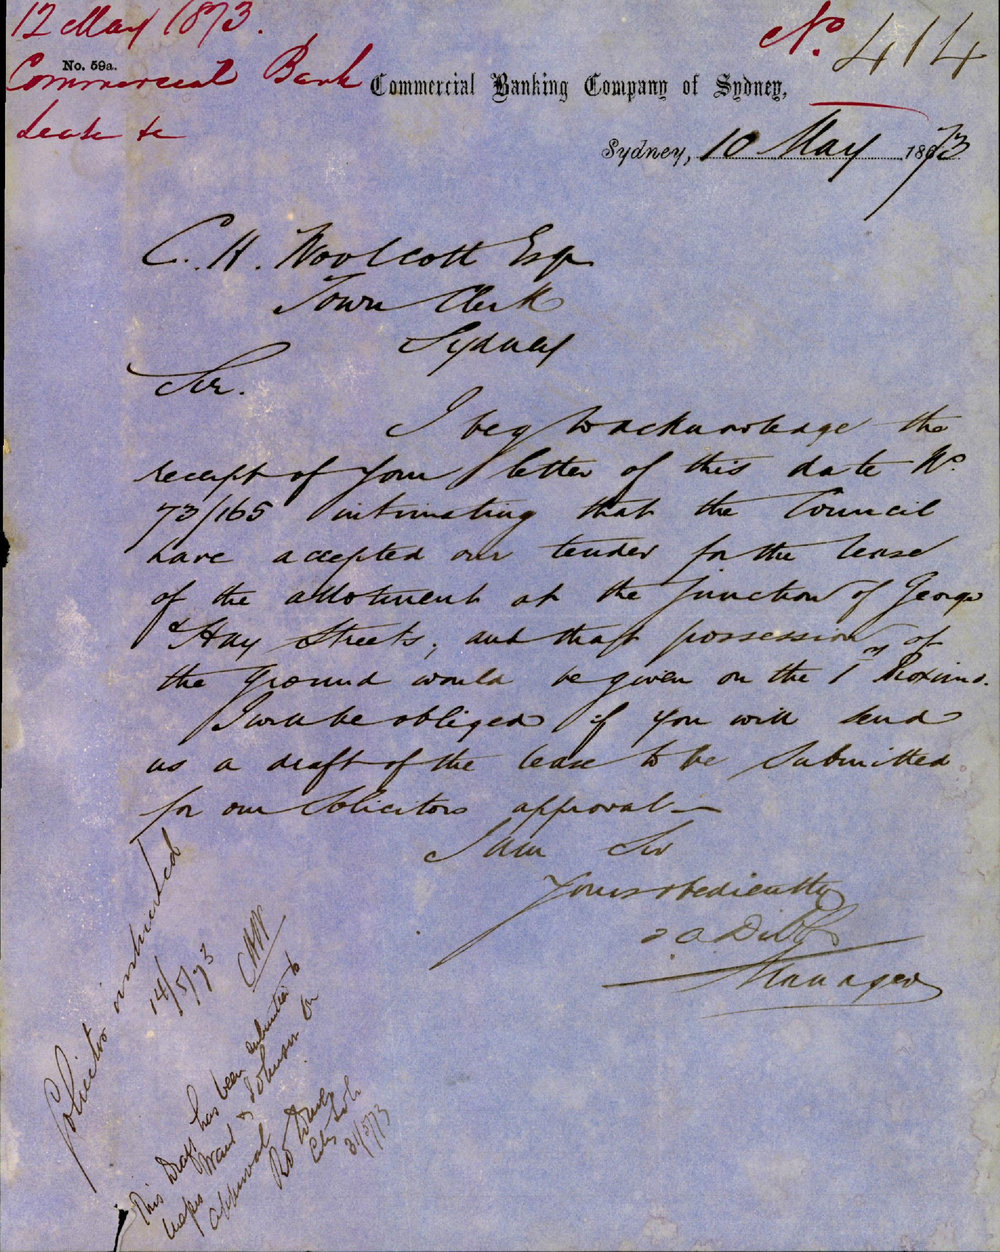 12 May 1873.
No. 59a.
Commercial Bank
Lease &c
No. 414
Commercial Banking Company of Sydney,
Sydney, 10 May 1873
C. H. Woolcott Esqr
Town Clerk
Sydney
Sir.
I beg to acknowledge the
receipt of your letter of this date No.
73/165 intimating that the Council
have accepted our tender for the lease
of the allotment at the junction of George
& Hay Streets, and that possession of
the ground would be given on the 1st Proximo.
I will be obliged if you will send
us a draft of the lease to be submitted
for our Solicitors approval—
I am Sir
Yours obediently
Manager
Solicitor instructed
14/5/73
CHW
This Draft has been submitted to
Messrs Want & Johnson for
approval
City Solr
31/5/73